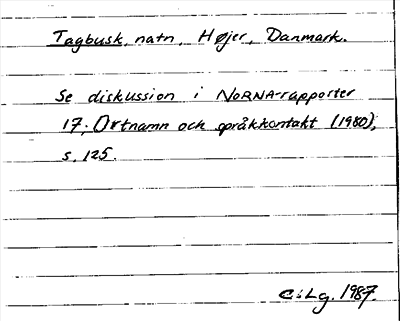 Tagbusk, natn, Højer, Danmark.
Se diskussion i NORNA-rapporter
17; Ortnamn och språkkontakt (1980),
s. 125.
C:Lg. 1987.